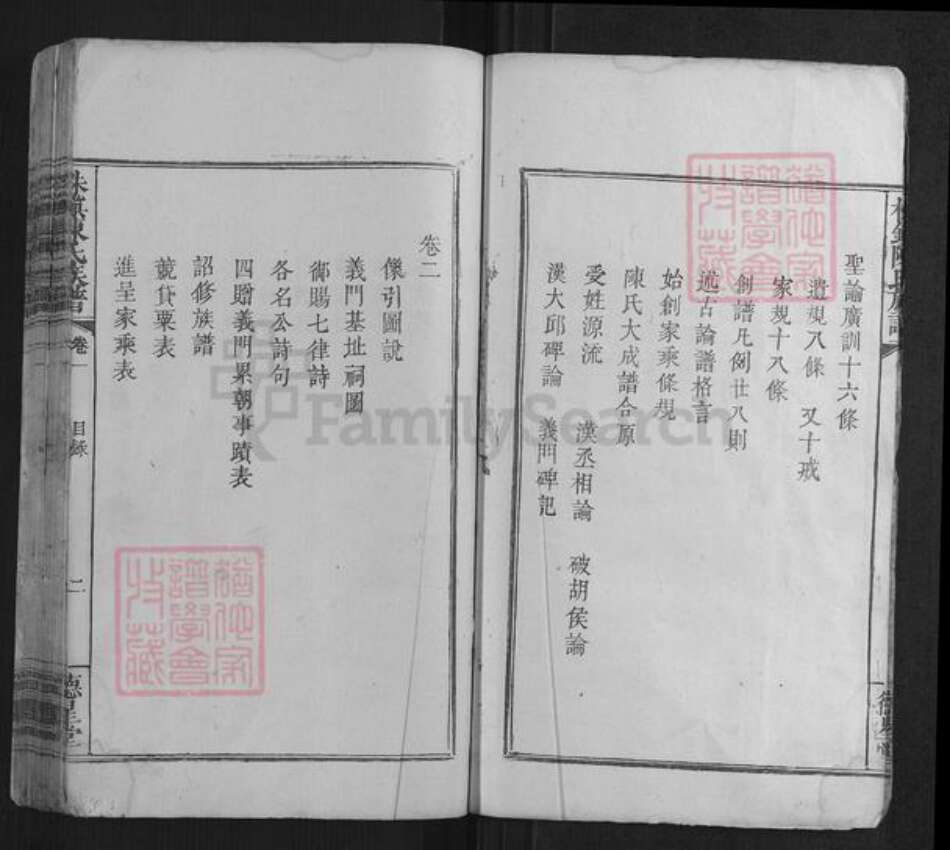 聖諭廣訓十六條
遺規八條 又十戒
家規十八條
創譜凡例廿八則
述古論譜格言
始創家乘條規
陳氏大成譜合原
受姓源流 漢丞相論 破胡侯論
漢大邱碑論 義門碑記
卷二
像引圖說
義門基址祠圖
御賜七律詩
各名公詩句
四贈義門累朝事蹟表
詔修族譜
競貸粟表
進呈家乘表
陳氏族譜
卷一
目錄
二
德星堂
FamilySearch